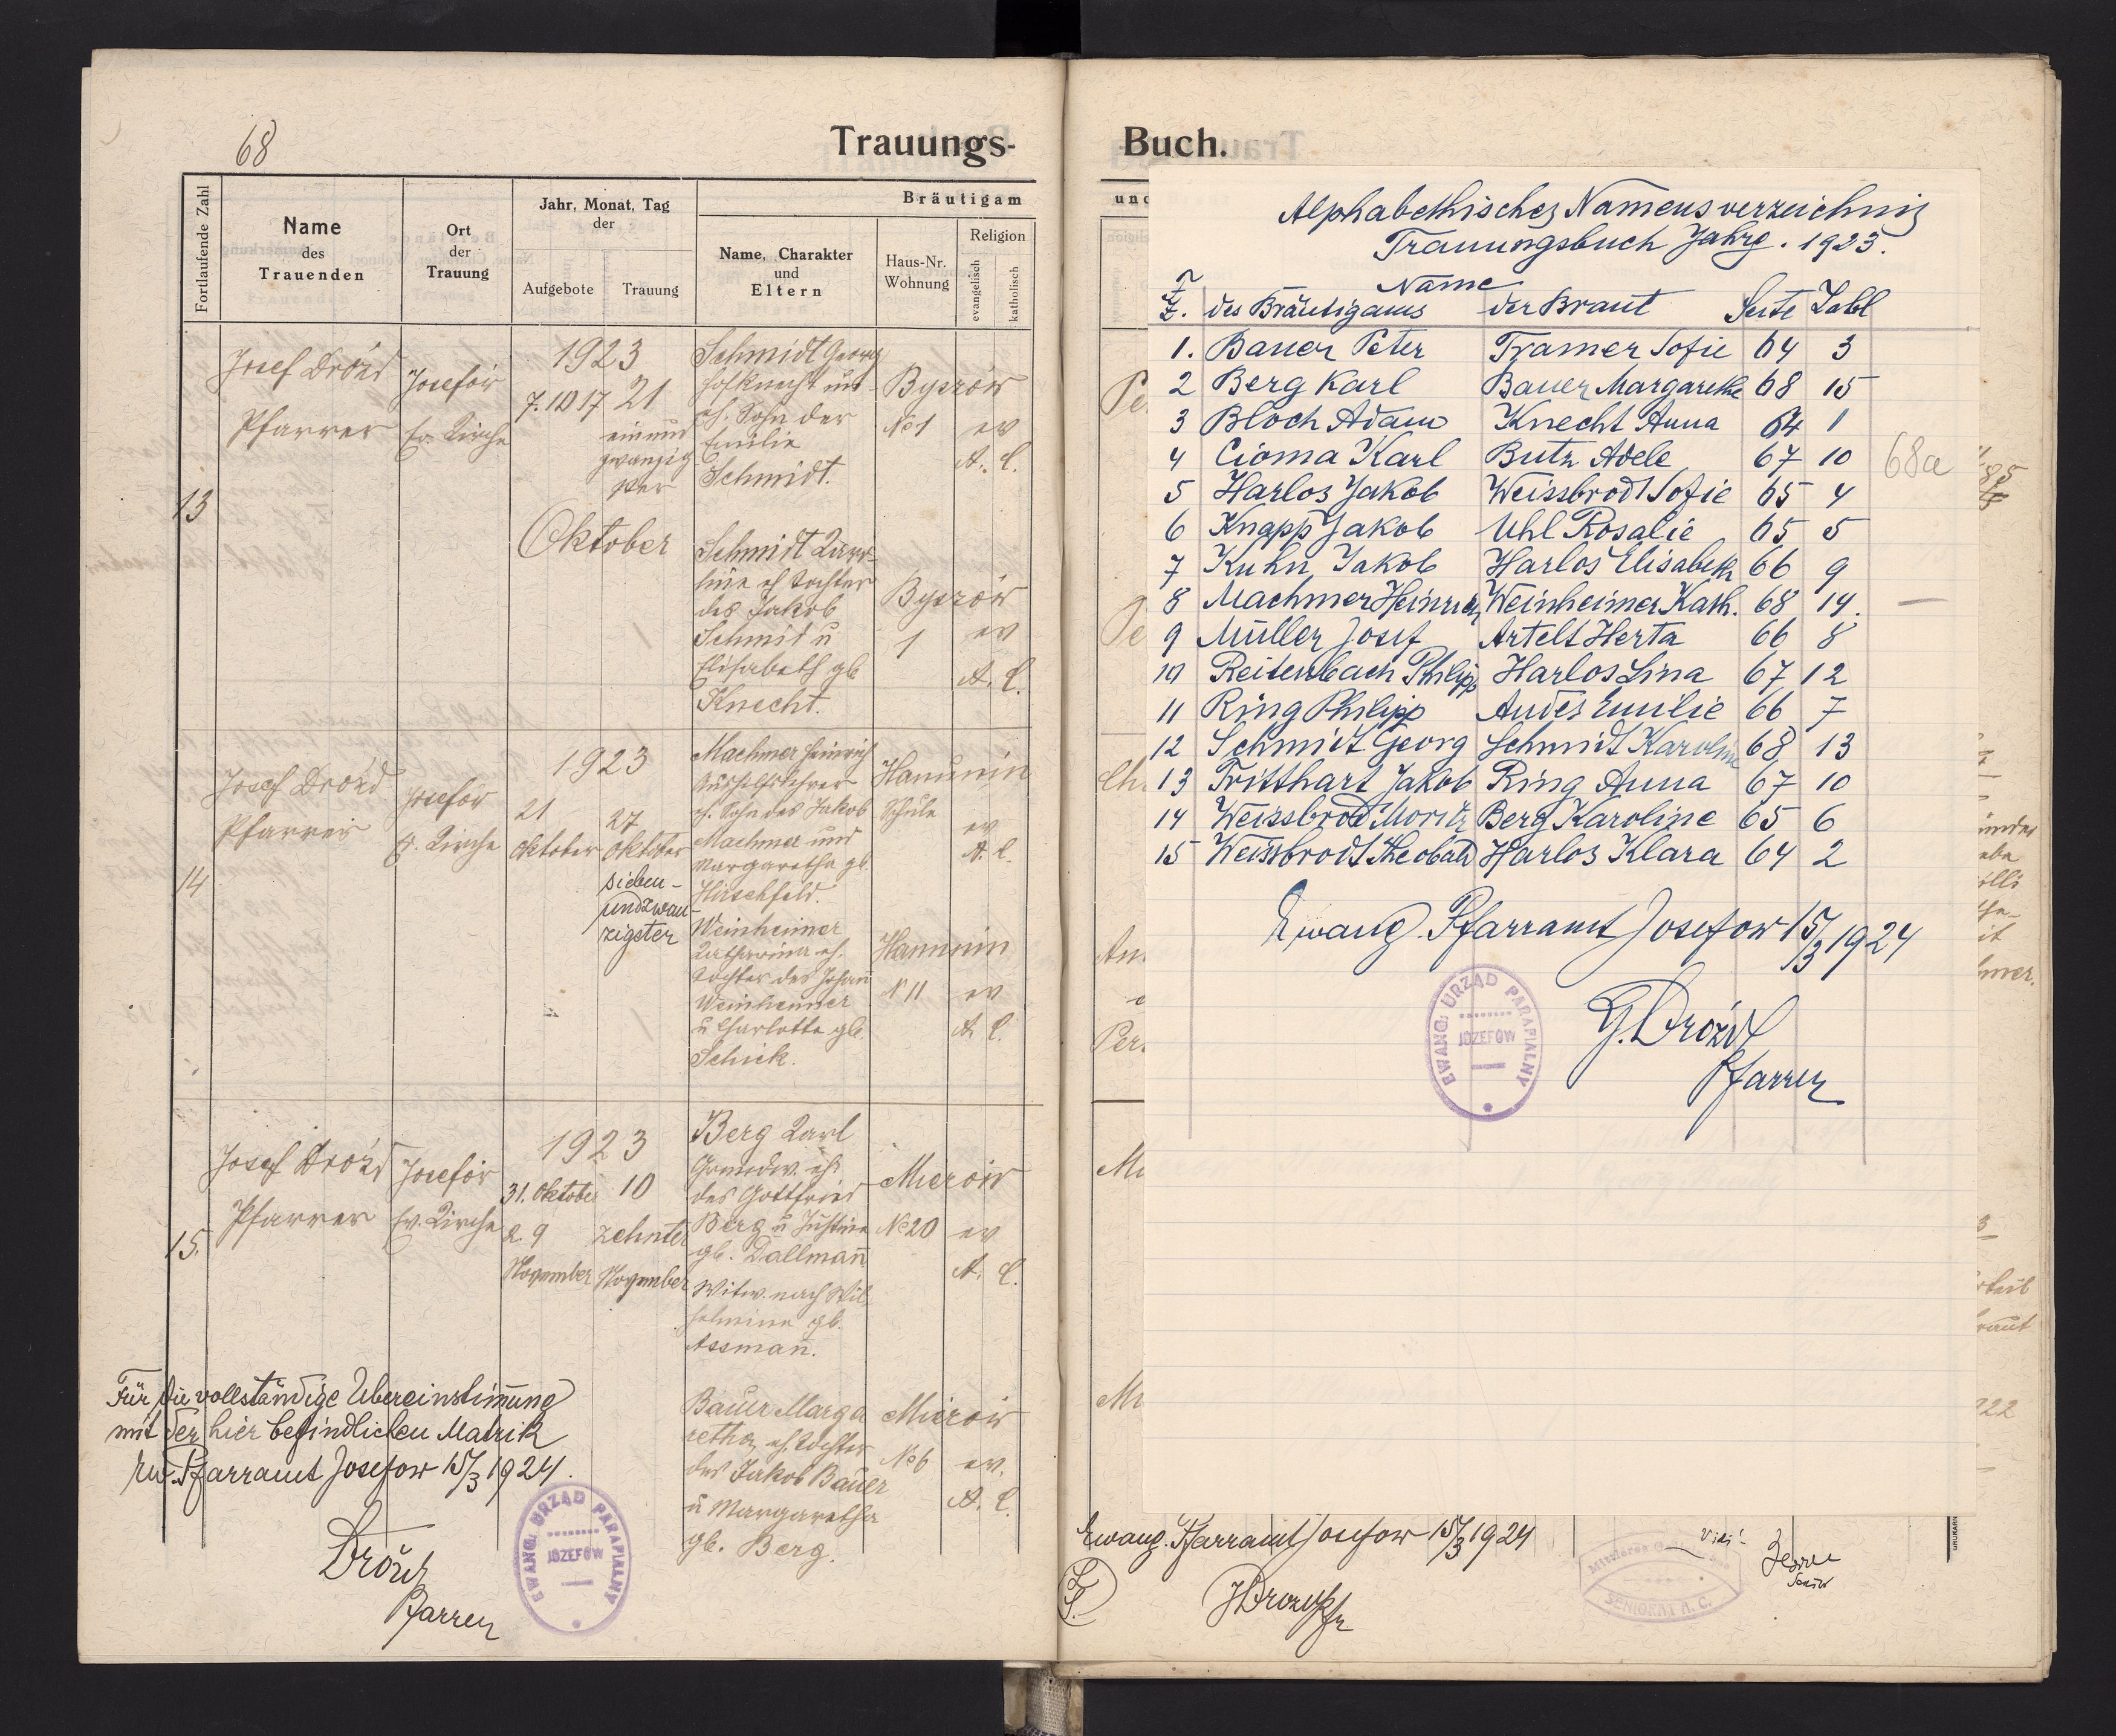 68
Trauungs-
Fortlaufende Zahl
Name
des
Trauenden
Ort
der
Trauung
Jahr, Monat, Tag
der
Aufgebote
Trauung
Bräutigam
Name, Charakter
und
Eltern
Haus-Nr.
Wohnung
Religion
evangelisch
katholisch
13
Josef Drozd
Pfarrer
Josefów
Ev. Kirche
1923
7. 10 17 21
ein und
zwanzig
ster
Oktober
Schmidt Georg
Hofknecht un
eh. Sohn der
Emilie
Schmidt.
Byszów
No 1
ev
A. C.
Schmidt Karo-
line eh Tochter
des Jakob
Schmid u
Elisabeth gb
Knecht.
Byszów
1
ev
A. C.
14
Josef Drozd
Pfarrer
Josefów
Ev. Kirche
1923
21
Oktober
27
Oktober
sieben-
undzwan-
zigster
Machmer Heinrich
Aushilfslehrer
eh. Sohn des Jakob
Machmer und
Margaretha gb.
Hirschfeld.
Hanunin
Schule
ev
A. C.
Weinheimer
Katharina eh.
Tochter des Johann
Weinheimer
u Charlotte gb
Schick.
Hanunin
N 11
ev
A. C.
15.
Josef Drozd
Pfarrer
Josefów
Ev. Kirche
1923
31. Oktober
2. 9
November
10
zehnter
November
Berg Karl
Grundw. eh.
des Gottfried
Berg u Justine
gb. Dallmann
Witw. nach Wil
helmine gb.
Assmann.
Mierów
No 20
ev
A. C.
Bauer Marga
retha, eh. Tochter
des Jakob Bauer
u Margaretha
gb. Berg.
Mierów
No 6
ev.
A. C.
Für die vollständige Übereinstimmung
mit der hier befindlichen Matrik
Ew. Pfarramt Josefow 15/3 1924.
Drozd
Pfarrer
EWANG. URZĄD PARAFIALNY
JÓZEFÓW
Buch.
und
Alphabethisches Namensverzeichnis
Trauungsbuch Jahrg. 1923.
Name
F. Z. des Bräutigams der Braut Seite Zahl
1. Bauer Peter Tramer Sofie 64 3
2 Berg Karl Bauer Margarethe 68 15
3 Bloch Adam Knecht Anna 64 1
4 Cioma Karl Butz Adele 67 10
5 Harlos Jakob Weissbrodt Sofie 65 4
6 Knapp Jakob Uhl Rosalie 65 5
7 Kuhn Jakob Harlos Elisabeth 66 9
8 Machmer Heinrich Weinheimer Kath. 68 14.
9 Müller Josef Artelt Herta 66 8
10 Reitenbach Philipp Harlos Lina 67 12
11 Ring Philipp Andes Emilie 66 7
12 Schmidt Georg Schmidt Karoline 68 13
13 Tritthart Jakob Ring Anna 67 10
14 Weissbrod Moritz Berg Karoline 65 6
15 Weissbrodt Theobald Harlos Klara 64 2
68a
Ewang. Pfarramt Josefow 15/3 1924
G. Drozd
Pfarrer
EWANG. URZĄD PARAFIALNY
JÓZEFÓW
Ewang. Pfarramt Josefow 15/3 1924
L. S.
JDrozd Pfr
Vidi!
SENIORAT A. C.